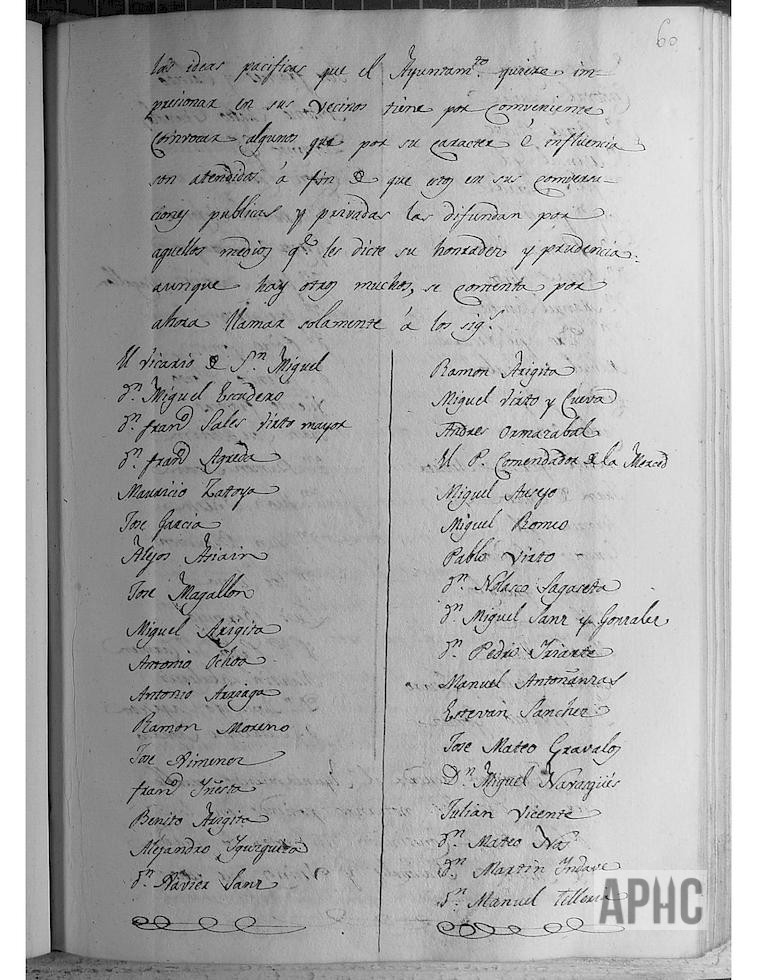 60
las ideas pacificas que el Ayuntam.to quiere im-
presionar en sus vecinos tiene por conveniente
convocar algunos que por su caracter é influencia
son atendidos á fin de que estos en sus conversa-
ciones publicas y privadas las difundan por
aquellos medios q.e les dicte su honradez y prudencia:
aunque hay otros muchos, se contenta por
ahora llamar solamente á los sig.s
El Vicario de S.n Miguel
D.n Miguel Escudero
D.n fran.co Sales Virto mayor
D.n fran.co Agreda
Mauricio Zatoya
Jose Garcia
Alejos Ariain
Jose Magallon
Miguel Arigita
Antonio Ochoa
Antonio Arriaga
Ramon Moreno
Jose Ximenez
fran.co Yñesta
Benito Arigita
Alejandro Ygurguiza
D.n Xavier Sanz
Ramon Arigita
Miguel Virto y Cueva
Andres Ormazabal
El P. Comendador de la Merced
Miguel Ausejo
Miguel Romeo
Pablo Virto
D.n Nolasco Sagaseta
D.n Miguel Sanz y Gonzalez
D.n Pedro Yriarte
Manuel Antoñanzas
Estevan Sanchez
Jose Mateo Gravalos
D.n Miguel Navasqües
Julian Vicente
D.n Mateo
D.n Martin Yndave
D.n Manuel Telleria
APHC